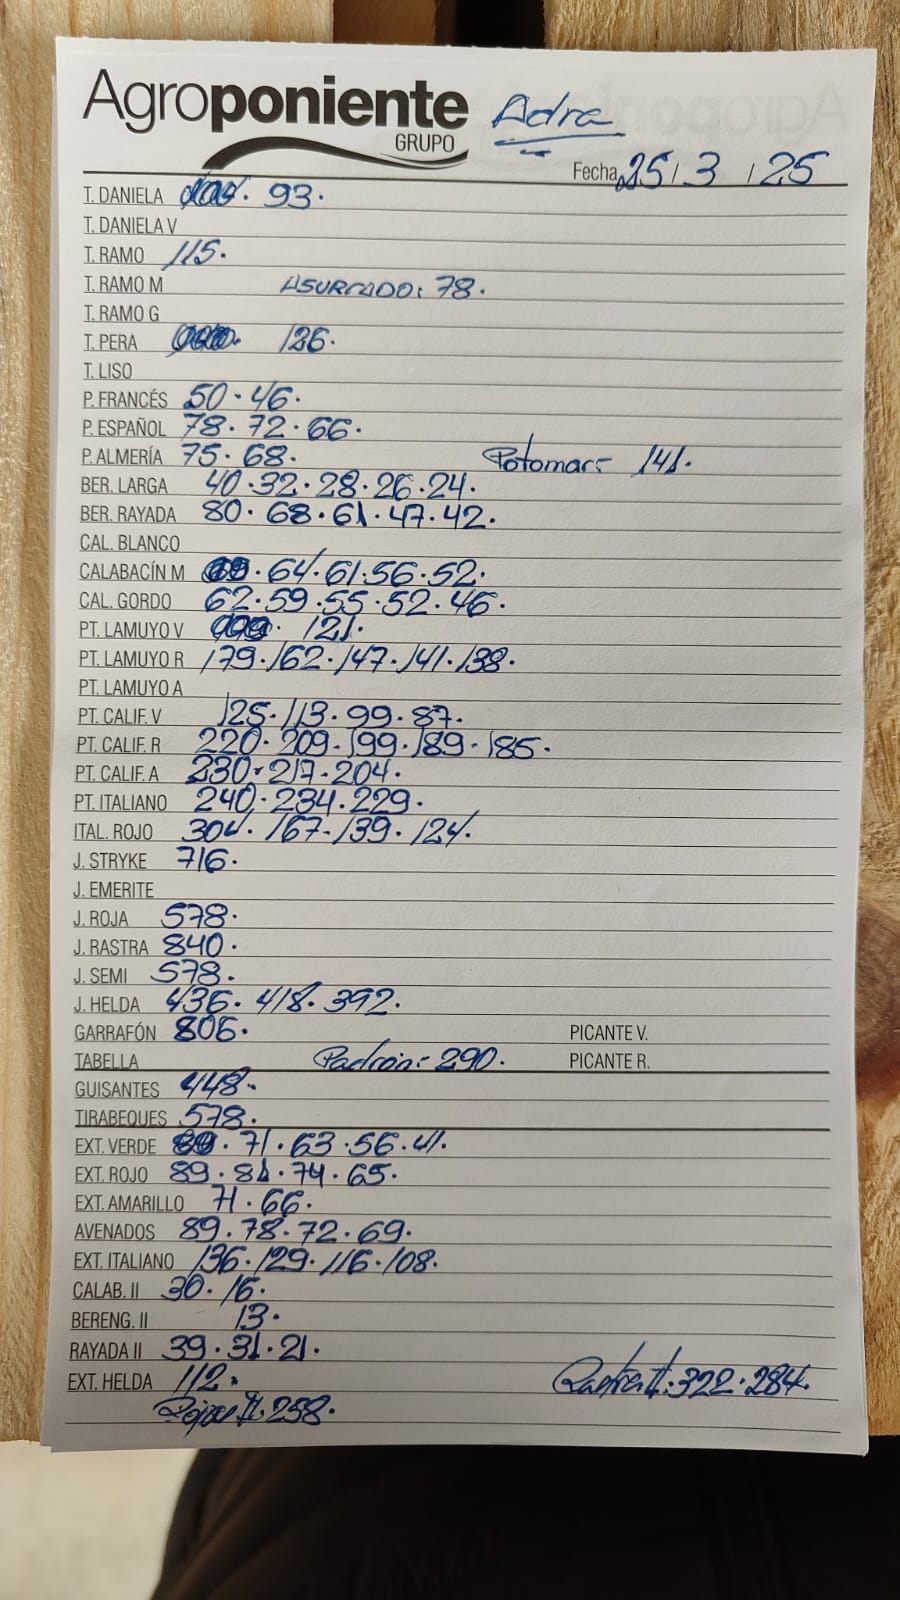 Agroponiente Adra
GRUPO
Fecha 25/3/25
T. DANIELA 93.
T. DANIELA V
T. RAMO 115.
T. RAMO M ASURCADO: 78.
T. RAMO G
T. PERA 126.
T. LISO
P. FRANCÉS 50.46.
P. ESPAÑOL 78.72.66.
P. ALMERÍA 75.68. Potomar:- 141.
BER. LARGA 40.32.28.26.24.
BER. RAYADA 80.68.61.47.42.
CAL. BLANCO
CALABACÍN M .64.61.56.52.
CAL. GORDO 62.59.55.52.46.
PT. LAMUYO V 121.
PT. LAMUYO R 179.162.147.141.138.
PT. LAMUYO A
PT. CALIF. V 125.113.99.87.
PT. CALIF. R 220.209.199.189.185.
PT. CALIF. A 230.217.204.
PT. ITALIANO 240.234.229.
ITAL. ROJO 304.167.139.124.
J. STRYKE 716.
J. EMERITE
J. ROJA 578.
J. RASTRA 840.
J. SEMI 578.
J. HELDA 436.418.392.
GARRAFÓN 806. PICANTE V.
TABELLA Padrón:- 290. PICANTE R.
GUISANTES 448.
TIRABEQUES 578.
EXT. VERDE .71.63.56.41.
EXT. ROJO 89.81.74.65.
EXT. AMARILLO 71.66.
AVENADOS 89.78.72.69.
EXT. ITALIANO 136.129.116.108.
CALAB. II 30.16.
BERENG. II 13.
RAYADA II 39.31.21.
EXT. HELDA 112. Rastra II: 322.284.
Rojas II: 258.